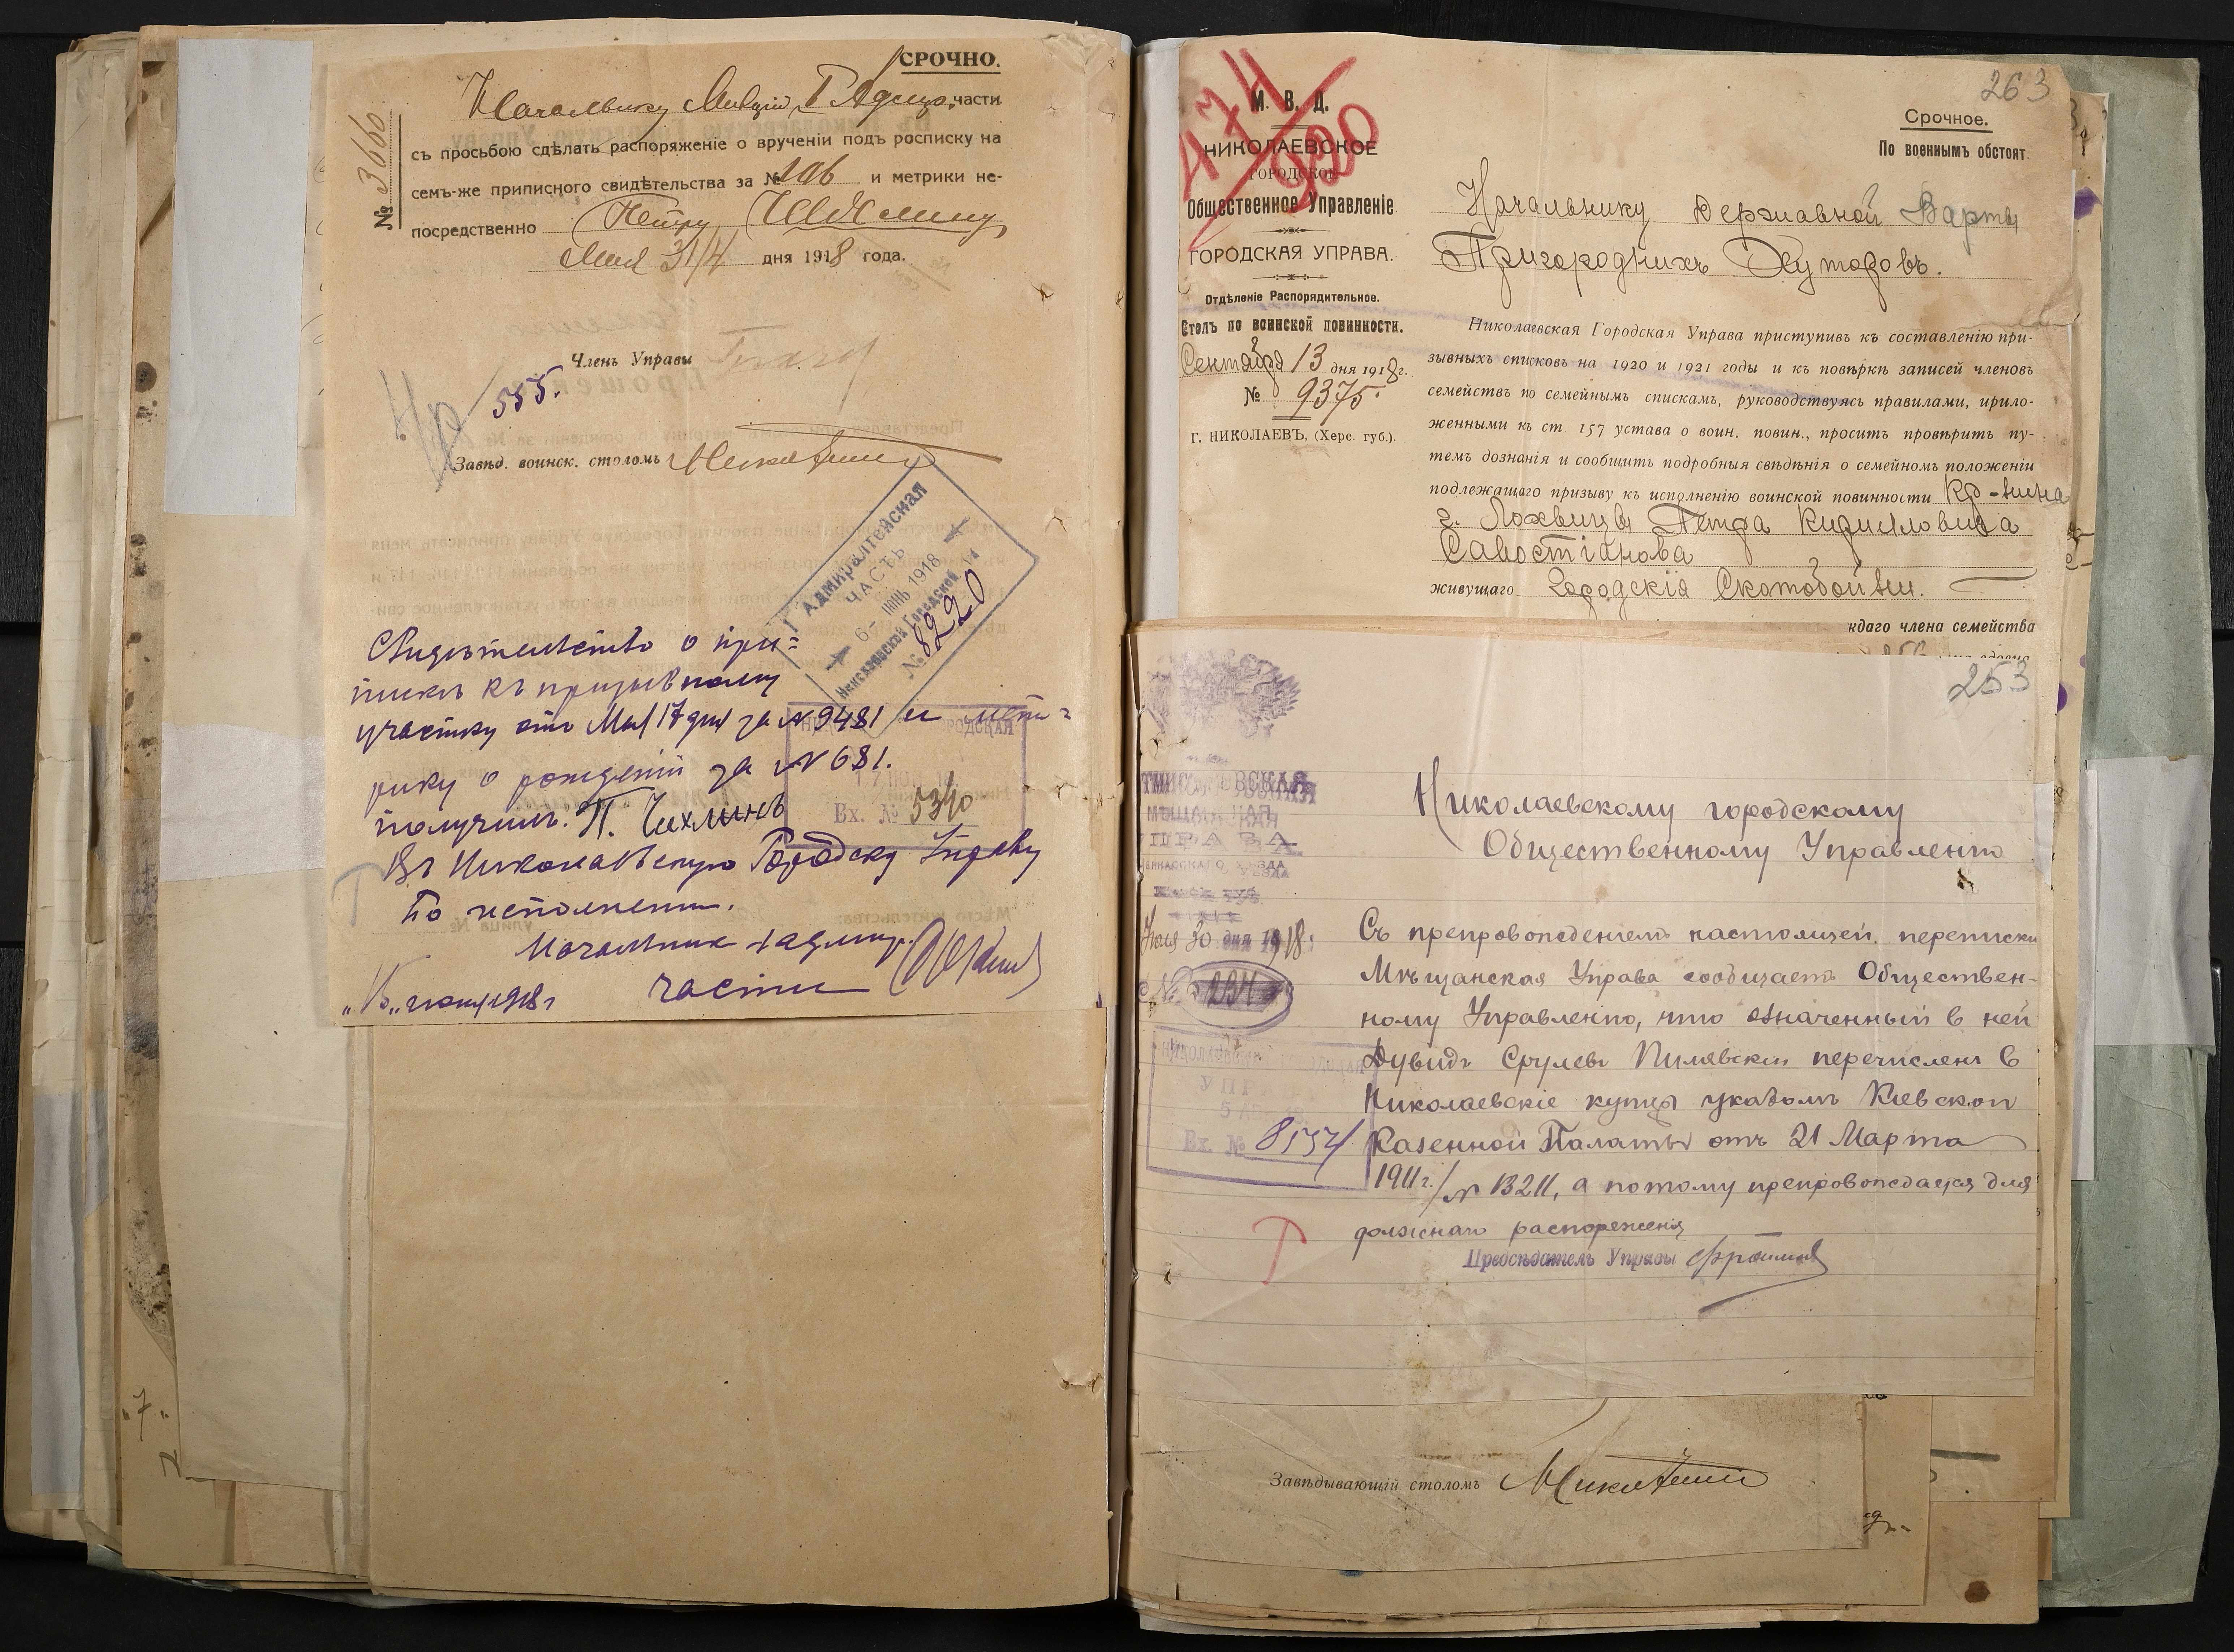 СРОЧНО.
№ 3660
Начальнику Милиціи 1 Адмир. части
съ просьбою сдѣлать распоряженіе о врученіи подъ росписку на
семъ-же приписного свидѣтельства за № 106 и метрики не-
посредственно Петру Чихмину
Мая 31/4 дня 1918 года.
Членъ Управы
555.
Завѣд. воинск. столомъ
1 Адмиралтейская
ЧАСТЬ
6- ІЮНЬ 1918
Николаевской Городской
№ 8220
Свидѣтельство о при=
пискѣ къ призывному
участку отъ Мая 17 дня за № 9481 и мет=
рику о рожденіи за № 681.
получилъ: П. Чихминъ
ГОРОДСКАЯ
Вх. № 5340
Въ Николаевскую Городску Управу
по исполнении.
Начальник 1 адмир.
части
"6" июня 1918 г
263
474
920
М. В. Д.
НИКОЛАЕВСКОЕ
ГОРОДСКОЕ
Общественное Управленіе
ГОРОДСКАЯ УПРАВА.
Отдѣленіе Распорядительное.
Столъ по воинской повинности.
Сентября 13 дня 1918 г.
№ 9375.
Г. НИКОЛАЕВЪ, (Херс. губ.).
Срочное.
По военнымъ обстоят.
Начальнику Державной Варты
Пригороднихъ Хуторовъ.
Николаевская Городская Управа приступивъ къ составленію при-
зывныхъ списковъ на 1920 и 1921 годы и къ повѣркѣ записей членовъ
семействъ по семейнымъ спискамъ, руководствуясь правилами, прило-
женными къ ст. 157 устава о воин. повин., проситъ провѣрить пу-
темъ дознанія и сообщить подробныя свѣдѣнія о семейномъ положеніи
подлежащаго призыву къ исполненію воинской повинности Кр-нина
г. Лохвицы Петра Кирилловича
Савостіанова
живущаго Городскія Скотобойни.
ждаго члена семейства
253
МѢЩАНСКАЯ
УПРАВА
ЧЕРКАССКАГО УѢЗДА
Кіевск. губ.
Іюля 30 дня 1918 г.
№ 234
НИКОЛАЕВСКАЯ ГОРОДСКАЯ
УПРАВА
Вх. № 8154
Николаевскому городскому
Общественному Управленію
Съ препровожденіемъ настоящей переписки
Мѣщанская Управа сообщаетъ Обществен-
ному Управленію, что означенный в ней
Дувидъ Срулевъ Пилявскій перечисленъ в
Николаевскіе купцы указомъ Кіевской
Казенной Палаты отъ 21 Марта
1911 г. / № 13211, а потому препровождается для
должнаго распоряженія
Предсѣдатель Управы
Завѣдывающій столомъ